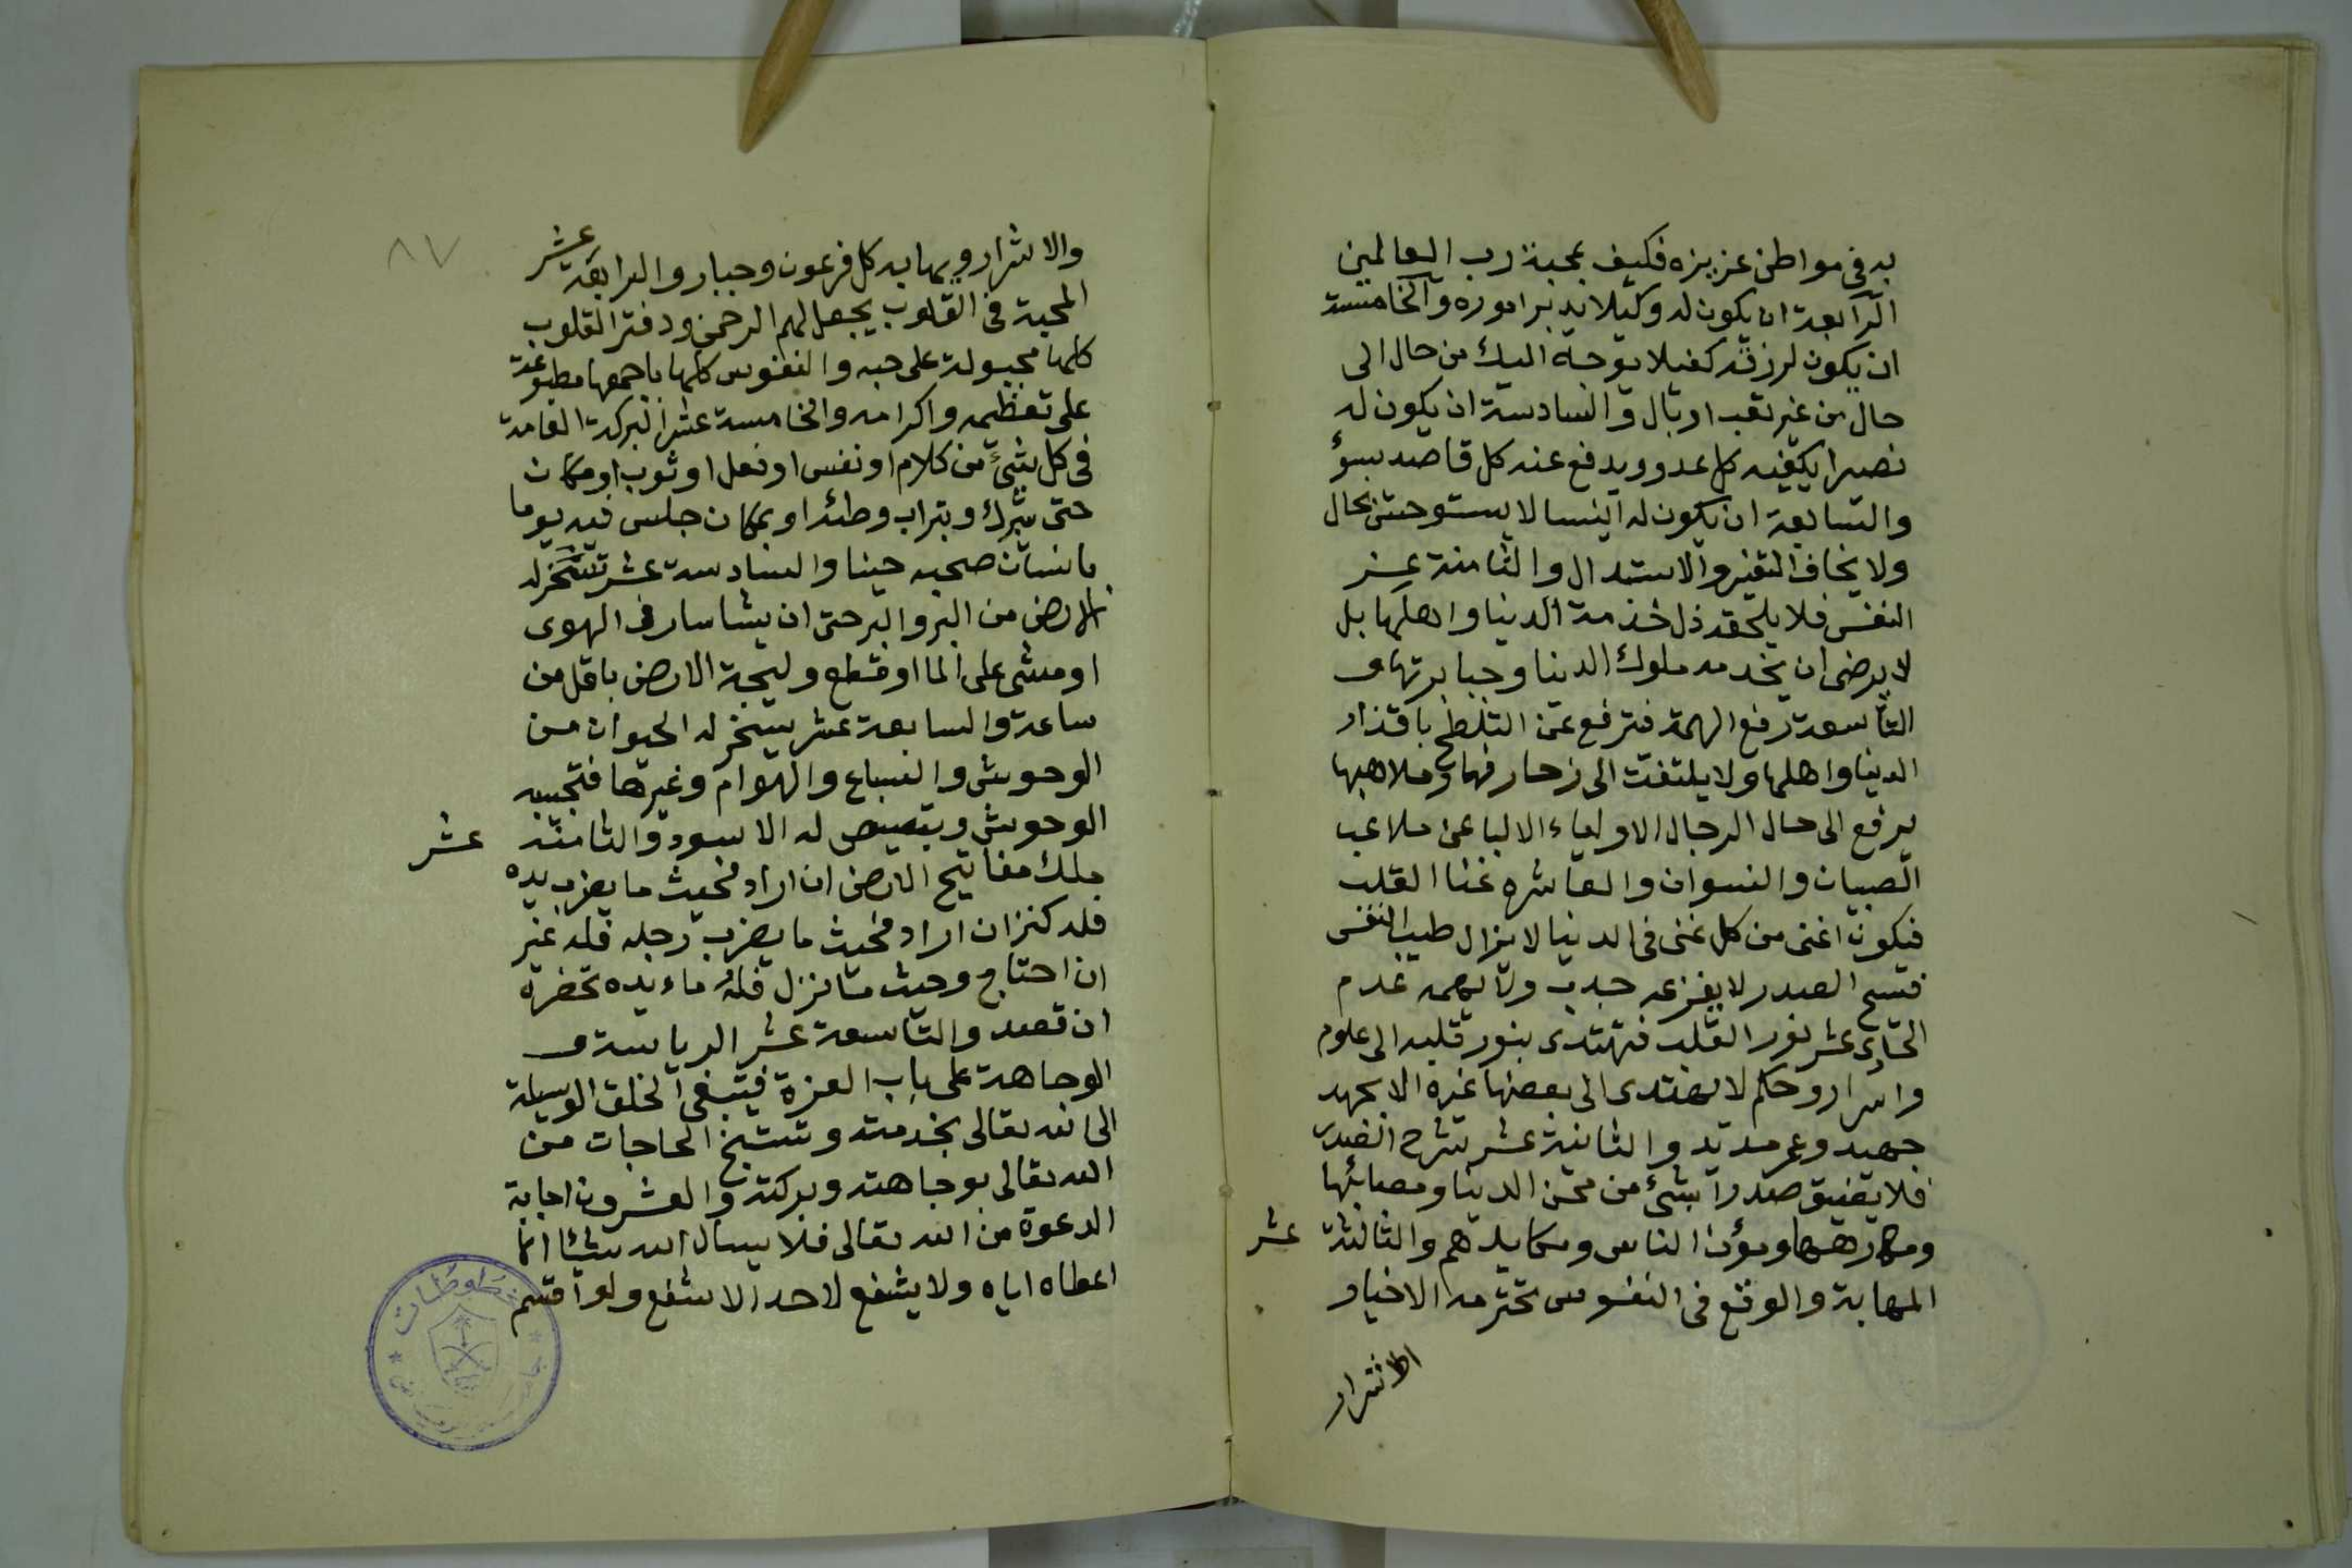 به فى مواطن عزيزه فكيف بمحبة رب العالمين
الرابعة ان يكون له وكيلا يدبر اموره والخامسة
ان يكون لرزقه كفيلا يوجه اليك من حال الى
حال من غير تعب او بال والسادسة ان يكون له
نصيرا يكفيه كل عدو ويدفع عنه كل قاصد بسؤ
والسابعة ان يكون له انيسا لا يستوحش بحال
ولا يخاف التغير والاستبدال والثامنة عز
النفس فلا يلحقه ذل خذمة الدنيا واهلها بل
لا يرضى ان يخدمه ملوك الدنيا وجبابرتها و
التاسعة رفع الهمة فترفع عن التلطخ باقذار
الدنيا واهلها ولا يلتفت الى زخارفها وملاهيها
يرفع الى حال الرجال الاولياء الالبا عن ملاعب
الصبيان والنسوان والعاشره غنا القلب
فيكون اغنى من كل غنى فى الدنيا لا يزال طيب النفس
فسيح الصدر لا يفزعه جدب ولا يهمه عدم
الحادى عشر نور القلب فتهتدى بنور قلبه الى علوم
واسرار وحكم لا يهتدى الى بعضها غيره الا بجهد
جهيد وعمر مديد والثانية عشر شرح الصدر
فلا يضيق صدرا بشئ من محن الدنيا ومصائبها
ومكارهها ومؤن الناس ومكايدهم والثالثة عشر
المهابة والوقع فى النفوس تحترمه الاخيار
الاشرار
٨٧
والاشرار ويهابه كل فرعون وجبار والرابعة عشر
المحبة فى القلوب يجعل لهم الرحمن ود فتر القلوب
كلها مجبولة على حبه والنفوس كلها باجمعها مطبوعة
على تعظيمه واكرامه والخامسة عشر البركة العامة
فى كل شئ من كلام او نفس او فعل او ثوب او مكان
حتى يتبرك وبتراب وطئه او بمكان جلس فيه يوما
بانسان صحبه حينا والسادسة عشر تسخر له
الارض من البر والبر حتى ان يشا سار فى الهوى
او مشى على الما او قطع وليجة الارض باقل من
ساعة والسابعة عشر يسخر له الحيوان من
الوحوش والسباع والهوام وغيرها فتجيبه
الوحوش ويتبصبص له الاسود والثامنة عشر
ملك مفاتيح الارض ان اراد فحيث ما يضرب يده
فله كنز ان اراد فحيث ما يضرب رجله فله عين
ان احتاج وحيث ما نزل فله مائده تحضره
ان قصد والتاسعة عشر الرياسة و
الوجاهة على باب العزة فيتبغى الخلق الوسيلة
الى الله تعالى بخدمته وتستنجح الحاجات من
الله تعالى بوجاهته وبركته والعشرون اجابة
الدعوة من الله تعالى فلا يسال الله شيئا انما
اعطاه اياه ولا يشفع لاحد الا شفع ولو اقسم